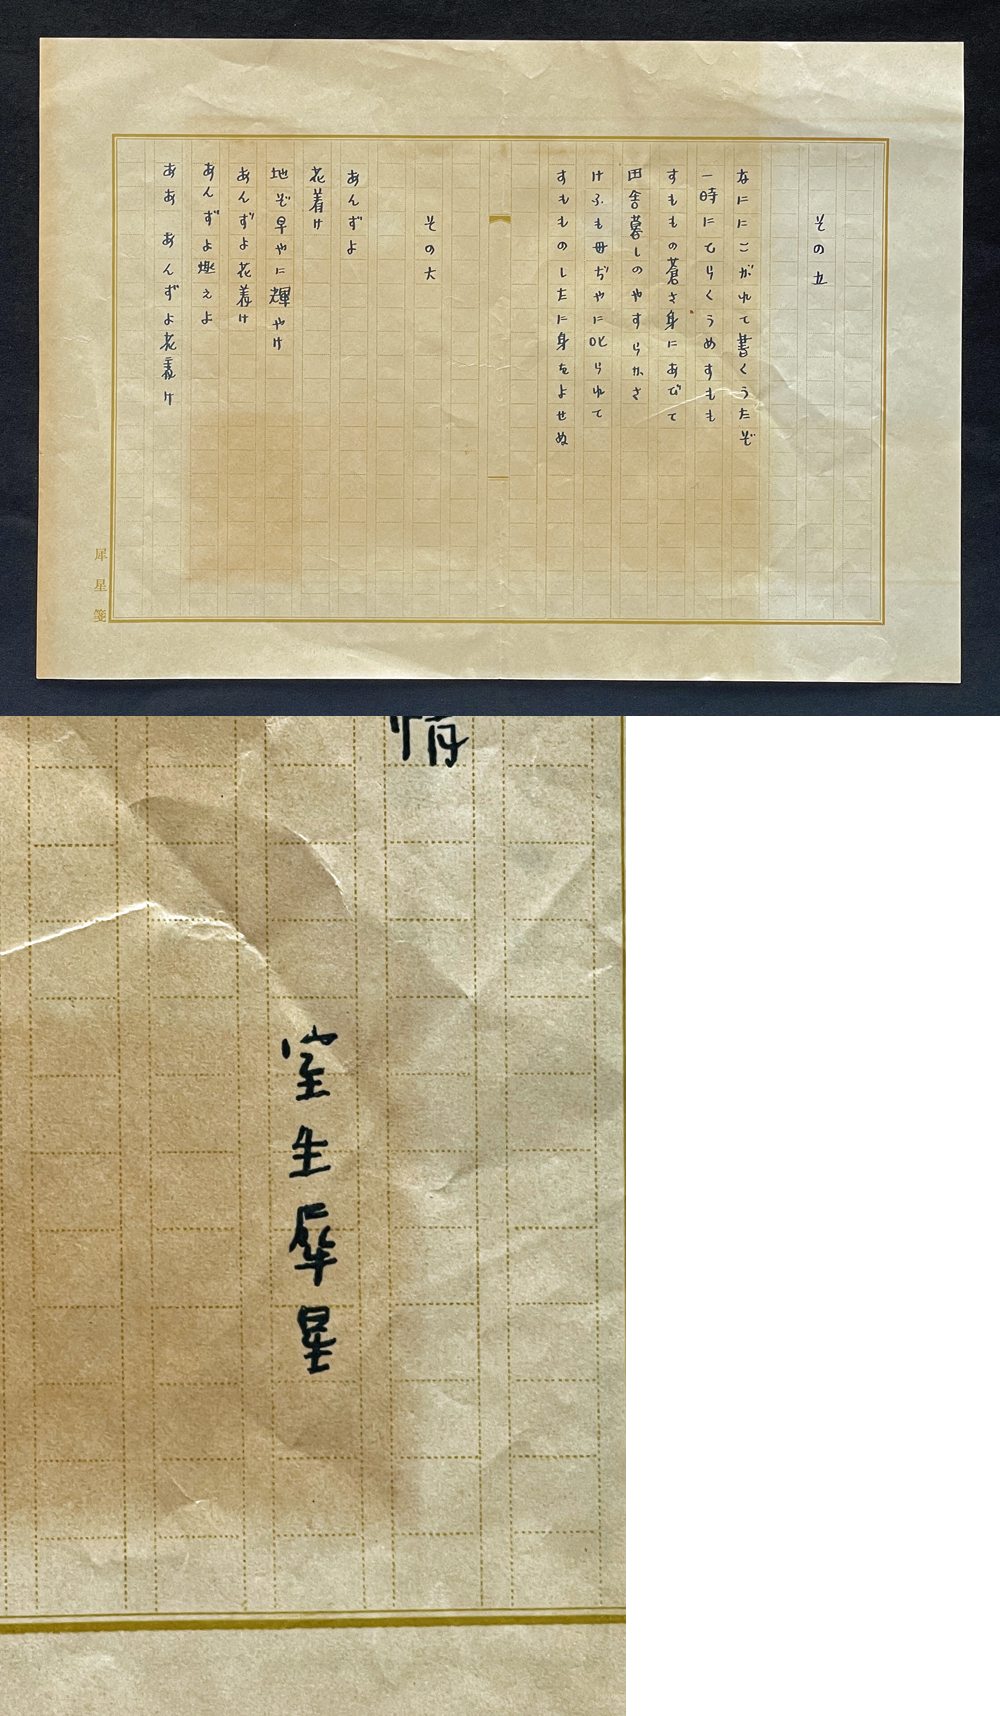 その五
なににこがれて書くうたぞ
一時にひらくうめすもも
すももの蒼さ身にあびて
田舎暮しのやすらかさ
けふも母ぢやに叱られて
すもものしたに身をよせぬ
その六
あんずよ
花着け
地ぞ早やに輝やけ
あんずよ花着け
あんずよ燃えよ
ああ あんずよ花着け
犀星箋
情
室生犀星